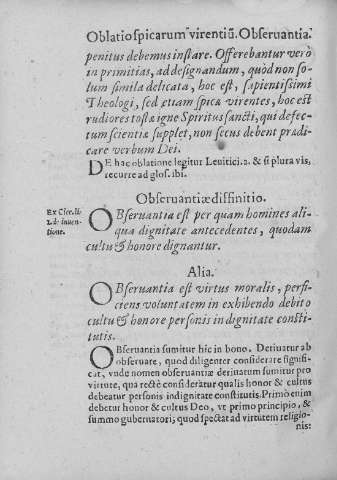 Oblatio spicarum virentiũ. Obseruantia.
penitus debemus instare. Offerebantur verò
in primitias, ad designandum, quòd non so-
lum simila delicata, hoc est, sapientissimi
Theologi, sed etiam spicæ virentes, hoc est
rudiores tostæ igne Spiritus sancti, qui defec-
tum scientiæ supplet, non secus debent prædi-
care verbum Dei.
DE hac oblatione legitur Leuitici. 2. & si plura vis,
recurre ad glos. ibi.
Obseruantiæ diffinitio.
Ex Cice. li.
2. de inuen-
tione.
OBseruantia est per quam homines ali-
qua dignitate antecedentes, quodam
cultu & honore dignantur.
Alia.
OBseruantia est virtus moralis, perfi-
ciens voluntatem in exhibendo debito
cultu & honore personis in dignitate consti-
tutis.
OBseruantia sumitur hîc in bono. Deriuatur ab
obseruare, quod diligenter considerare signifi-
cat, vnde nomen obseruantiæ deriuatum sumitur pro
virtute, qua rectè consideratur qualis honor & cultus
debeatur personis in dignitate constitutis. Primò enim
debetur honor & cultus Deo, vt primo principio, &
summo gubernatori; quod spectat ad virtutem religio-
nis: